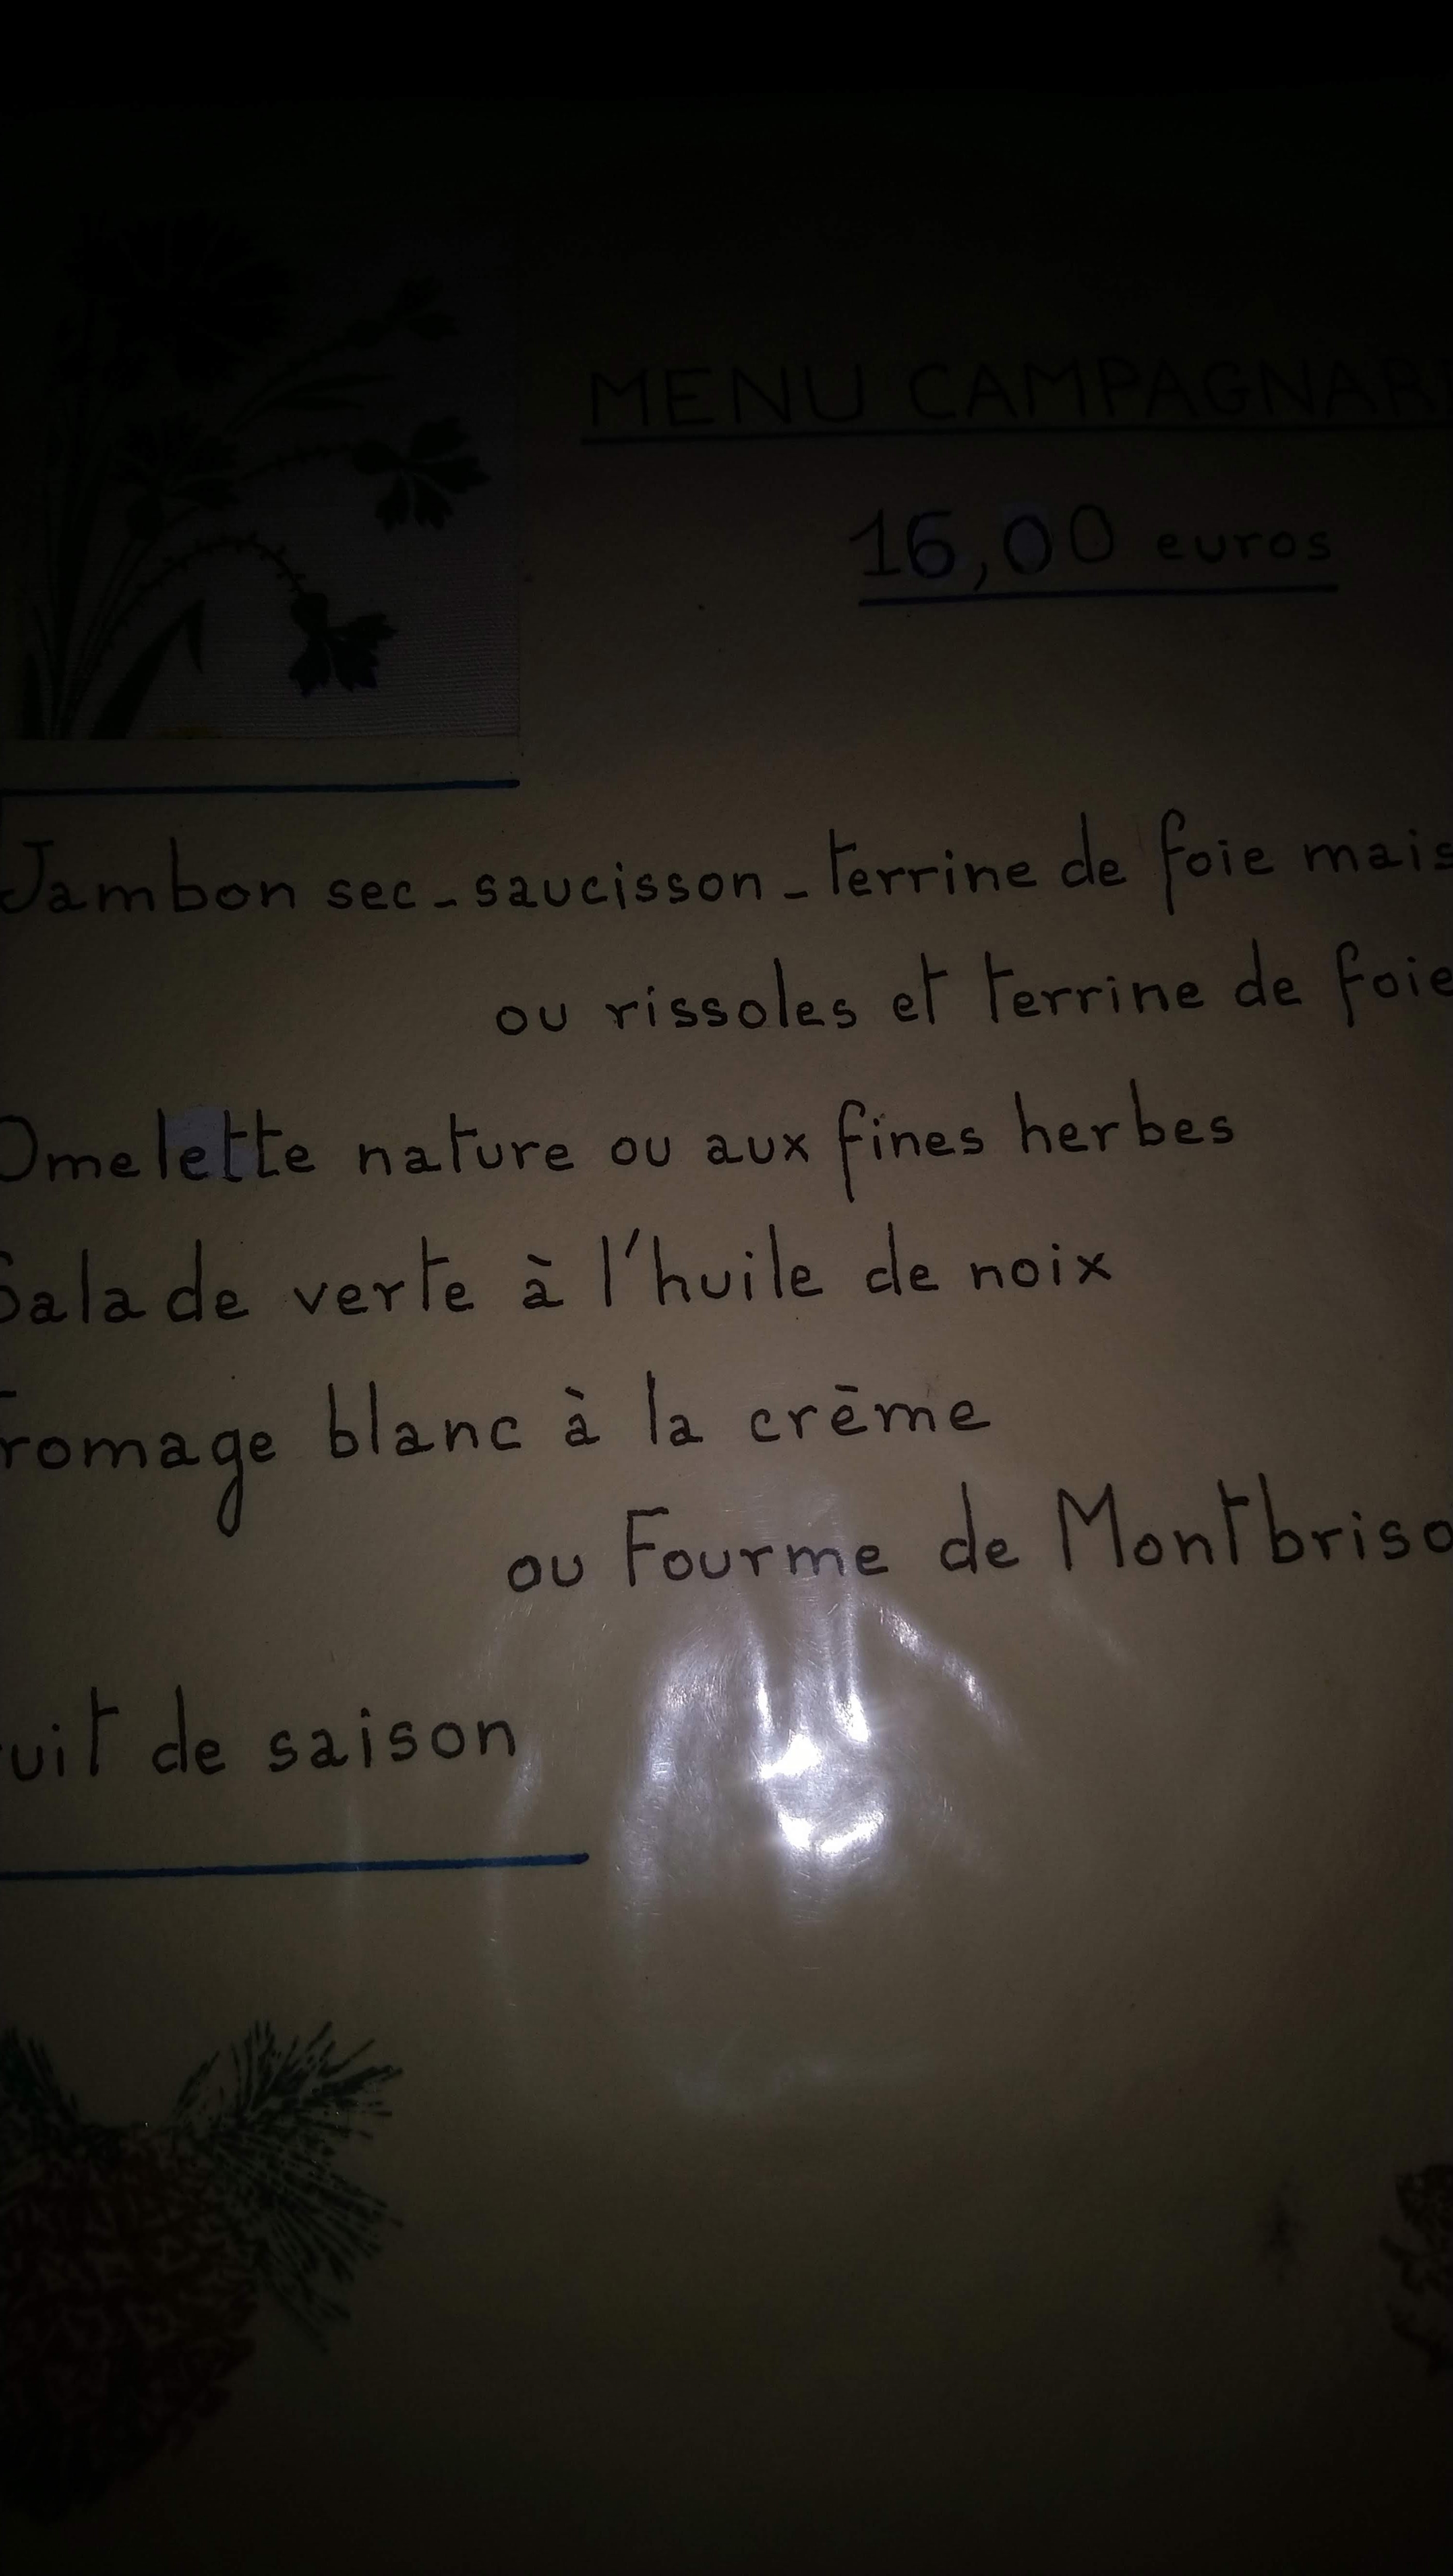 MENU CAMPAGNAR
16,00 euros
Jambon sec - saucisson - terrine de foie mais
ou rissoles et terrine de foie
Omelette nature ou aux fines herbes
Salade verte à l'huile de noix
Fromage blanc à la crème
ou Fourme de Montbriso
uit de saison